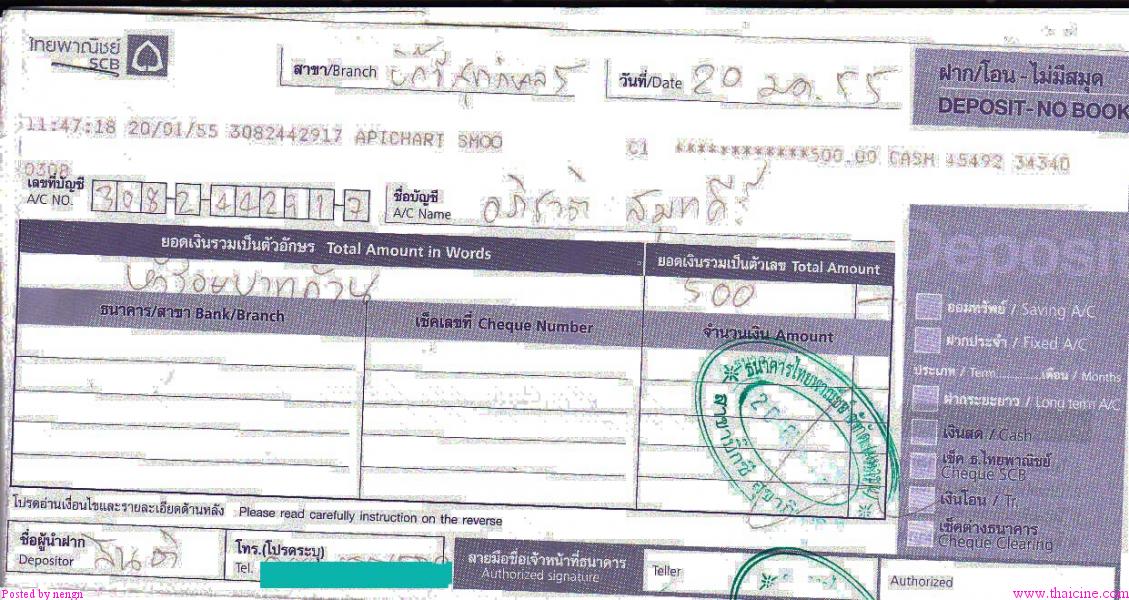 ไทยพาณิชย์
SCB
สาขา/Branch บิ๊กซีสุขาภิบาล 5
วันที่/Date 20 ม.ค. 55
ฝาก/โอน - ไม่มีสมุด
DEPOSIT- NO BOOK
11:47:18 20/01/55 3082442917 APICHART SMOO C1 ************500.00 CASH 45492 34340
0308
เลขที่บัญชี
A/C NO. 308-2-44291-7
ชื่อบัญชี
A/C Name อภิชาติ สมุทคีรี
ยอดเงินรวมเป็นตัวอักษร Total Amount in Words
ยอดเงินรวมเป็นตัวเลข Total Amount
ห้าร้อยบาทถ้วน
500 —
ธนาคาร/สาขา Bank/Branch
เช็คเลขที่ Cheque Number
จำนวนเงิน Amount
Deposit
ออมทรัพย์ / Saving A/C
ฝากประจำ / Fixed A/C
ประเภท / Term..........เดือน / Months
ฝากระยะยาว / Long term A/C
เงินสด / Cash
เช็ค ธ.ไทยพาณิชย์
Cheque SCB
เงินโอน / Tr.
เช็คต่างธนาคาร
Cheque Clearing
ธนาคารไทยพาณิชย์ จำกัด (มหาชน)
สาขาบิ๊กซี สุขาภิบาล
โปรดอ่านเงื่อนไขและรายละเอียดด้านหลัง Please read carefully instruction on the reverse
ชื่อผู้นำฝาก
Depositor สันติ
โทร.(โปรดระบุ)
Tel.
ลายมือชื่อเจ้าหน้าที่ธนาคาร
Authorized signature
Teller
Authorized
Posted by nengn
www.thaicine.com